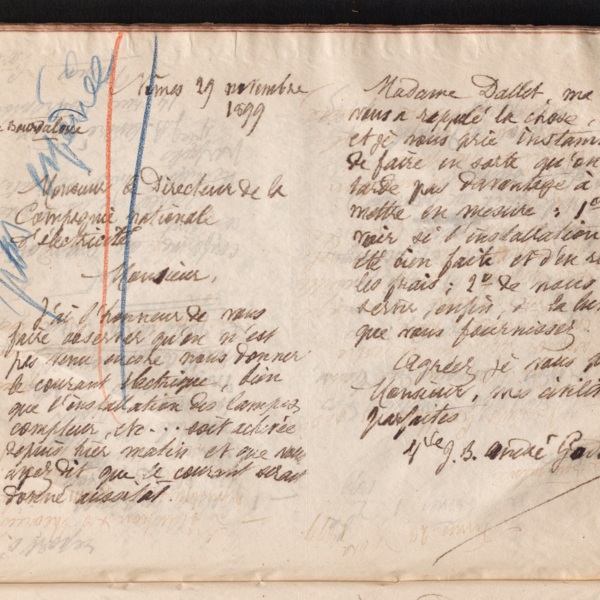 pas expédiée
Nîmes 29 novembre
1899
Bourdaloue
Monsieur le Directeur de la
Compagnie nationale
d'électricité
Monsieur,
J'ai l'honneur de vous
faire observer qu'on n'est
pas venu encore nous donner
le courant électrique, bien
que l'installation des lampes,
compteur, etc... soit achevée
depuis hier matin et que vous
ayez dit que le courant serait
donné aussitôt.
Madame Dallet ma
vous a rappelé la chose,
et je vous prie instam
de faire en sorte qu'on
tarde pas davantage à
mettre en mesure : 1º
voir si l'installation
été bien faite et d'en
les frais ; 2º de nous
servir, enfin, la lu
que vous fournissez.
Agréer, je vous
Monsieur, mes civilit
parfaites
J. B. André